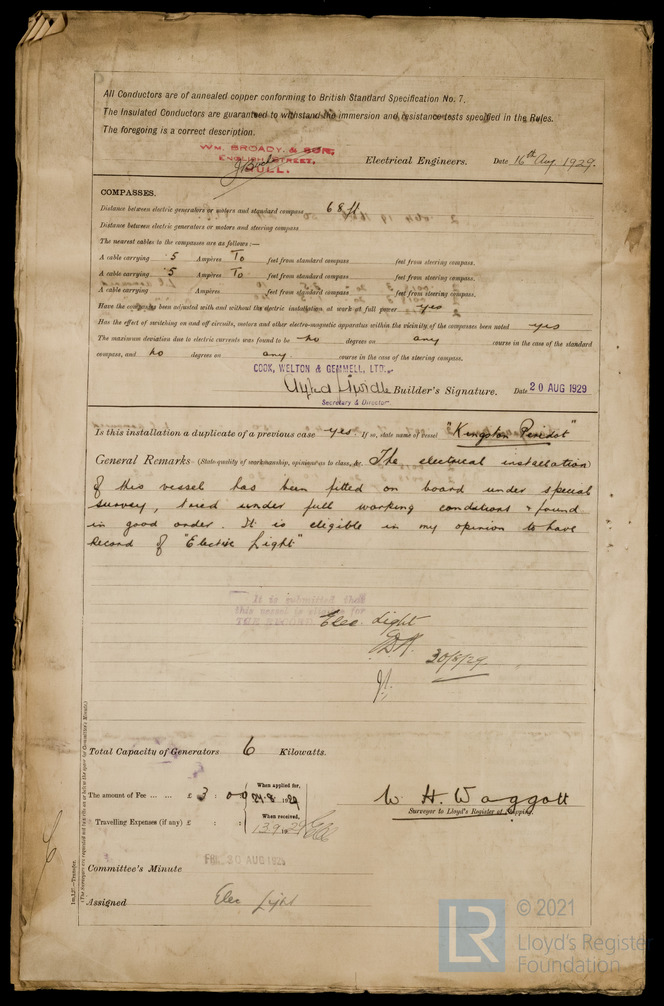 All Conductors are of annealed copper conforming to British Standard Specification No. 7.
The Insulated Conductors are guaranteed to withstand the immersion and resistance tests specified in the Rules.
The foregoing is a correct description.
WM. BROADY & SON,
ENGLISH STREET,
HULL.
Electrical Engineers. Date 16th Aug 1929.
COMPASSES.
Distance between electric generators or motors and standard compass 68 ft
Distance between electric generators or motors and steering compass
The nearest cables to the compasses are as follows:—
A cable carrying .5 Ampères To feet from standard compass feet from steering compass.
A cable carrying .5 Ampères To feet from standard compass feet from steering compass.
A cable carrying Ampères feet from standard compass feet from steering compass.
Have the compasses been adjusted with and without the electric installation at work at full power yes
Has the effect of switching on and off circuits, motors and other electro-magnetic apparatus within the vicinity of the compasses been noted yes
The maximum deviation due to electric currents was found to be no degrees on any course in the case of the standard
compass, and no degrees on any course in the case of the steering compass.
COOK, WELTON & GEMMELL, LTD.,
Builder's Signature. Date 20 AUG 1929
Secretary & Director
Is this installation a duplicate of a previous case yes If so, state name of vessel "Kingston Peridot"
General Remarks (State quality of workmanship, opinions as to class, &c. The electrical installation
of this vessel has been fitted on board under special
survey, tried under full working conditions & found
in good order. It is eligible in my opinion to have
record of "Electric Light"
It is submitted that
this vessel is eligible for
THE RECORD Elec Light
30/8/29
Total Capacity of Generators 6 Kilowatts.
The amount of Fee ... ... £ 3 : 0 0 When applied for, 29.8.1929
Travelling Expenses (if any) £ : : When received, 13.9.1929
W H Waggott
Surveyor to Lloyd's Register of Shipping.
FRI. 30 AUG 1929
Committee's Minute
Assigned Elec Light
1m.1,27.—Transfer.
© 2021
LR
Lloyd's Register
Foundation